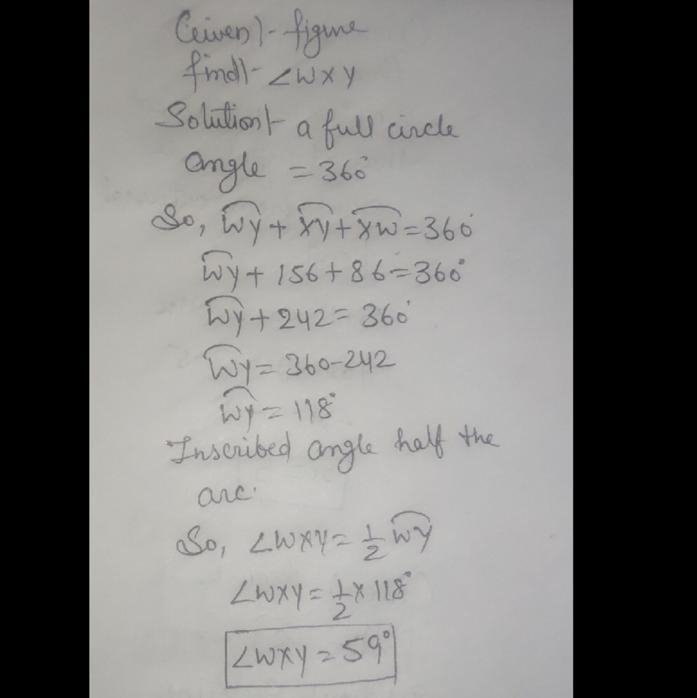 Given)- figure
find)- ∠WXY
Solution)- a full circle
angle = 360°
So, W͡Y + X͡Y + X͡W = 360°
W͡Y + 156 + 86 = 360°
W͡Y + 242 = 360°
W͡Y = 360 - 242
W͡Y = 118°
Inscribed angle half the
arc.
So, ∠WXY = 1/2 W͡Y
∠WXY = 1/2 × 118°
∠WXY = 59°